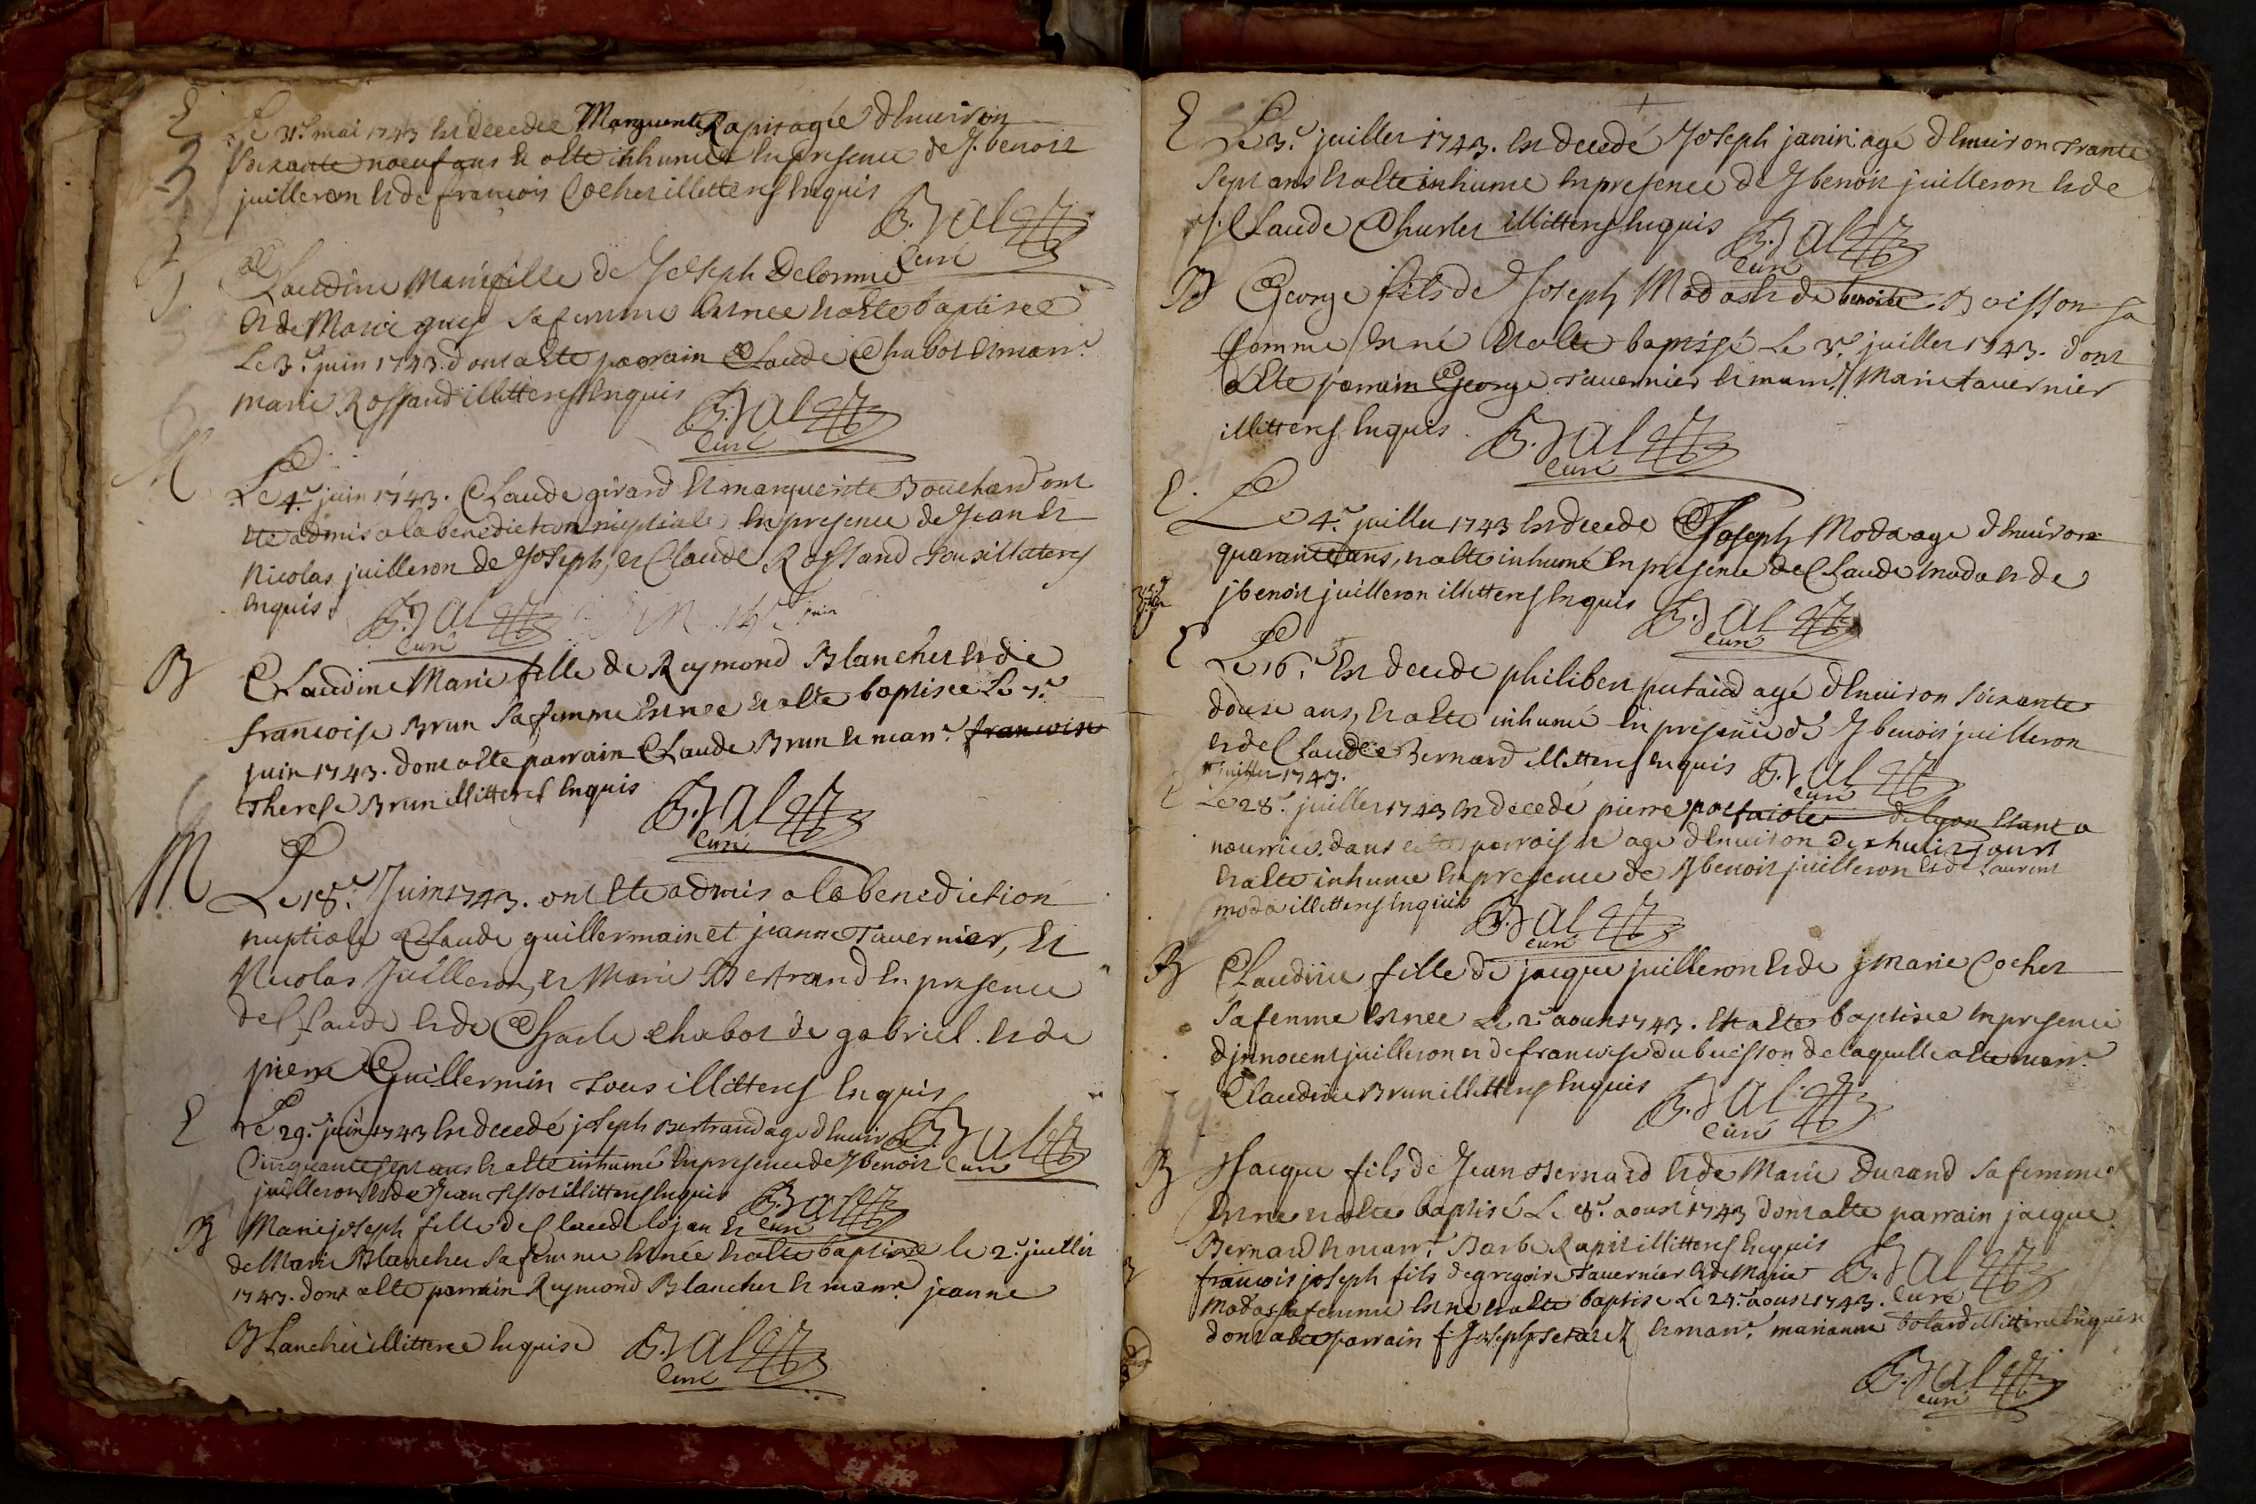 E Le 31.e mai 1743 est decedée Marguerite Rapit agée d'Enuiron
soixante noeuf ans et a ete inhumée En presence de J. benoit
juilleron et de francois Cochet illitteres Enquis
B. Jal
Curé
B Claudine Marie fille de Joseph Delorme
et de Marie guy sa femme est née et a ete baptisee
Le 3.e juin 1743. dont a ete parrain Claude Chabot et marr.e
marie Rossand illitteres Enquis
B. Jal
Curé
M Le 4.e juin 1743. Claude girard et marguerite Bouchard ont
ete admis a la benediction nuptiale En presence de Jean et
Nicolas juilleron de Joseph, et Claude Rossand tous illiteres
Enquis
B. Jal
Curé
B Claudine Marie fille de Reymond Blanchet et de
francoise Brun sa femme est nee et a ete baptisee Le 7.e
juin 1743. dont a ete parrain Claude Brun et marr.e francoise
Therese Brun illitteres Enquis
B. Jal
Curé
M Le 18.e Juin 1743. ont Ete admis a la benediction
nuptiale Claude guillermain et jeanne Tavernier, Et
Nicolas Juilleron, et Marie Bertrand En presence
de Claude et de Charle chabot de gabriel. et de
pierre Guillermin tous illitteres Enquis
B. Jal
Curé
E Le 29.e juin 1743 est decedé joseph Bertrand agé d'Enuiron
Cinquante sept ans et a ete inhumé En presence de J benoit
juilleron et de Jean tissot illitteres Enquis
B. Jal
Curé
B Marie joseph fille de Claude lojan et
de Marie Blanchet sa femme est née et a ete baptisee le 2.e juillet
1743. dont a ete parrain Reymond Blanchet et marr.e jeanne
Blanchet illitteree Enquise
B. Jal
Curé
E Le 3.e juillet 1743. est decedé Joseph janin agé d'Enuiron trante
sept ans et a ete inhumé En presence de J benoit juilleron et de
j. Claude Charlet illitteres Enquis
B. Jal
Curé
B George fils de Joseph Modas et de benoite Boisson sa
femme est né et a ete baptisé Le 3.e juillet 1743. dont
a ete parrain George tavernier et marr.e Marie tavernier
illitteres Enquis
B. Jal
Curé
E. Le 4.e juillet 1743 est decede Joseph Moda agé d'Enuiron
quarante ans, et a ete inhumé En presence de Claude moda et de
j benoit juilleron illitteres Enquis
B. Jal
Curé
E Le 16.e est decede philibert putaud agé d'Enuiron soixante
douze ans, et a ete inhumé En presence de J benoit juilleron
et de Claude Bernard illitteres Enquis
B. Jal
Curé
juillet 1743.
E Le 28.e juillet 1743 est decedé pierre de Lyon Etant a
nourrice dans cette parroisse agé d'Enuiron dix huit jours
et a ete inhumé En presence de J benoit juilleron et de Laurent
moda illitteres Enquis
B. Jal
Curé
B Claudine fille de jacque juilleron et de j marie Cochet
sa femme est nee Le 2.e aoust 1743. et a ete baptisee En presence
d'jnnocent juilleron et de francoise dubuisson de laquelle a ete marr.e
Claudine Brun illitteres Enquis
B. Jal
Curé
B Jacque fils de Jean Bernard et de Marie Durand sa femme
est né et a ete baptisé Le 8.e aoust 1743 dont a ete parrain jacque
Bernard et marr.e Barbe Rapit illitteres Enquis
B. Jal
Curé
B francois joseph fils de gregoire Tavernier et de Marie
Modas sa femme est né et a ete baptise Le 24.e aoust 1743.
dont a ete parrain f Joseph et marr.e marianne illitteree Enquise
B. Jal
Curé